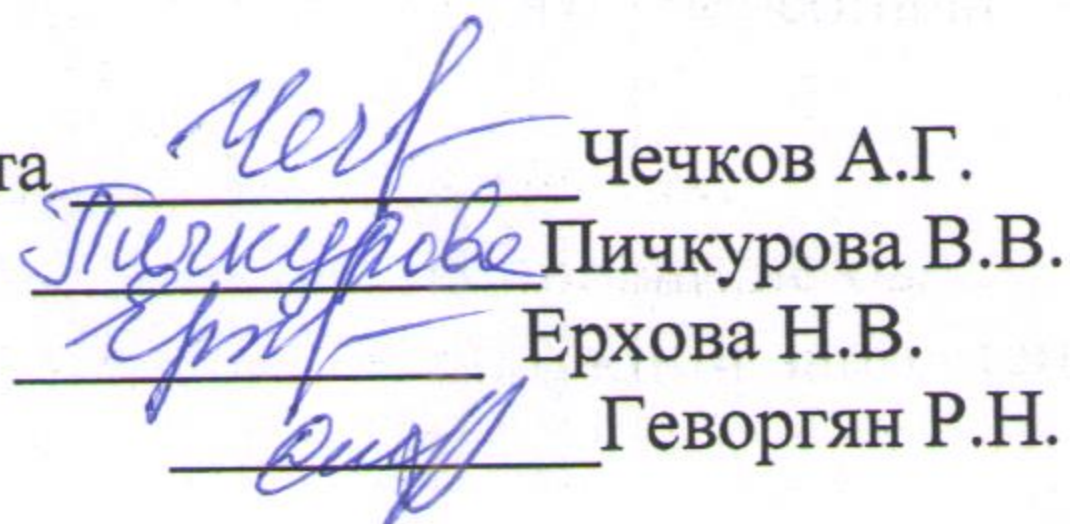 та Чечков А.Г.
Пичкурова Пичкурова В.В.
Ерхова Н.В.
Геворгян Р.Н.